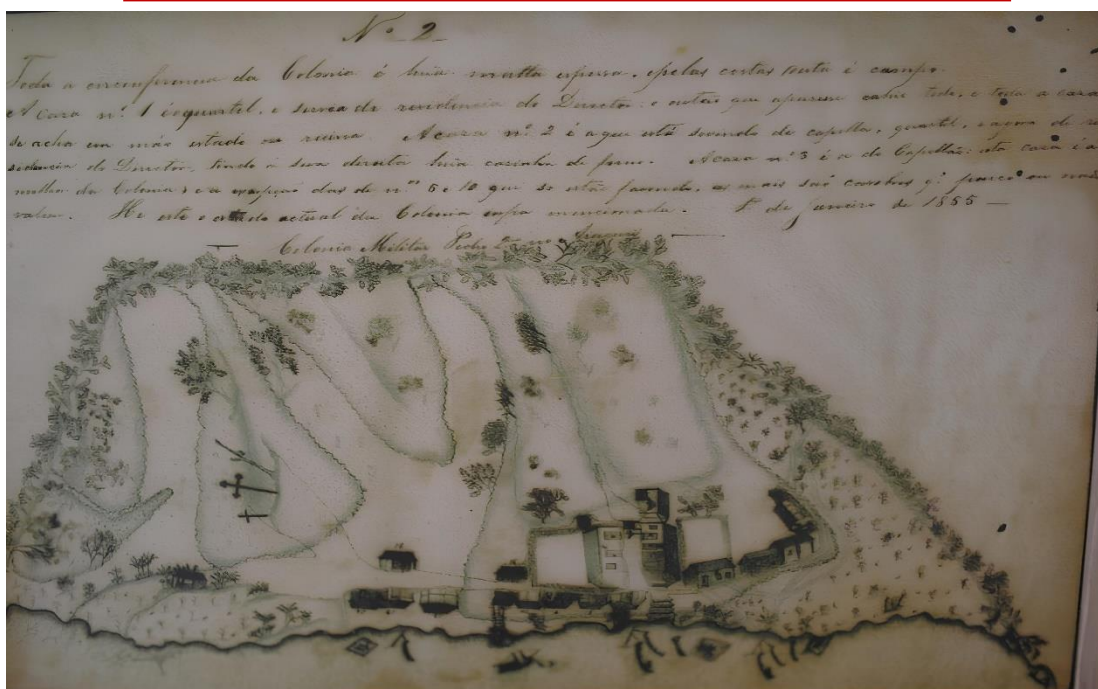 Nº 2
Toda a circonferencia da Colonia é huã matta espessa, e pelas costas desta é campo.
A Caza nº 1 é quartel, e servia de residencia do Director: o outão que aparece cahiu todo, e toda a caza
se acha em máo estado ou ruina. A caza nº 2 é a que está servindo de capella, quartel, e agora de re
sidencia do Director, tendo á sua direita huã cazinha de forno. A caza nº 3 é a do Capellão: esta caza é a
melhor da Colonia; e a excepção das de nos 5 e 10 que se estão fazendo, as mais são cazebres q' pouco ou nada
valem. He este o estado actual da Colonia supra mencionada. 1º de Janeiro de 1855 —
Colonia Militar Pedro 2º no Araguary